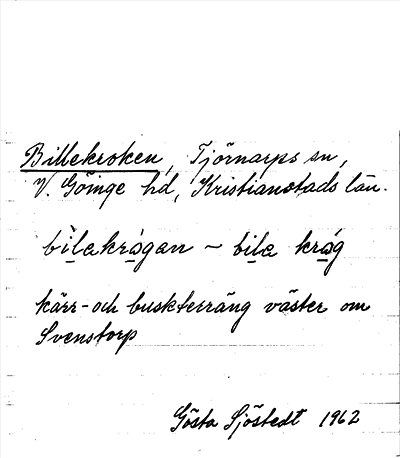 Billekroken, Tjörnarps sn,
V. Göinge hd, Kristianstads län.
bìlakrågan ~ bila kråg
kärr- och buskterräng väster om
Svenstorp
Gösta Sjöstedt 1962